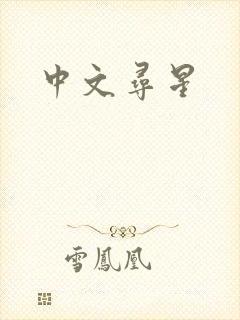 中文尋星
雪鳳凰